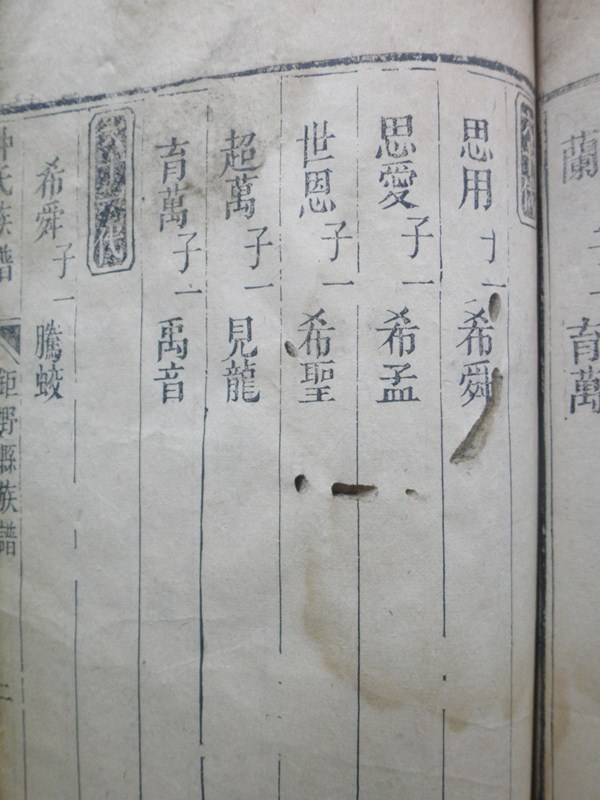 蘭
育萬
思用子一希舜
思愛子一希孟
世恩子一希聖
超萬子一見龍
育萬子一禹音
希舜子一騰蛟
仲氏族譜
鉅野縣族譜
二